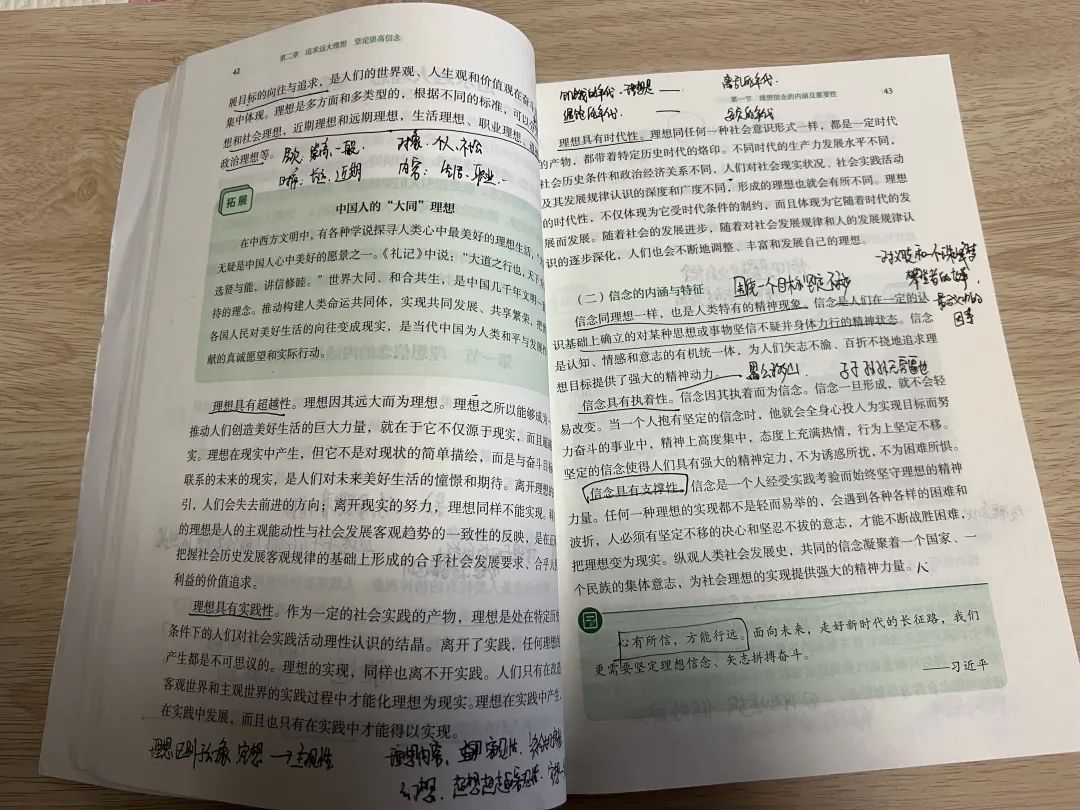 42
第二章 追求远大理想 坚定崇高信念
展目标的向往与追求，是人们的世界观、人生观和价值观在奋斗
集中体现。理想是多方面和多类型的，根据不同的标准，可以分
想和社会理想，近期理想和远期理想，生活理想、职业理想、道
政治理想等。
层次：崇高、一般
对象：个人、社会
时序：长远、近期
内容：生活、职业
拓展
中国人的“大同”理想
在中西方文明中，有各种学说探寻人类心中最美好的理想生活，“大
无疑是中国人心中美好的愿景之一。《礼记》中说：“大道之行也，天下
选贤与能，讲信修睦。”世界大同、和合共生，是中国几千年文明一
持的理念。推动构建人类命运共同体，实现共同发展、共享繁荣，把
各国人民对美好生活的向往变成现实，是当代中国为人类和平与发展
献的真诚愿望和实际行动。
理想具有超越性。理想因其远大而为理想。理想之所以能够成为
推动人们创造美好生活的巨大力量，就在于它不仅源于现实，而且超越
实。理想在现实中产生，但它不是对现状的简单描绘，而是与奋斗目标
联系的未来的现实，是人们对未来美好生活的憧憬和期待。离开理想的
引，人们会失去前进的方向；离开现实的努力，理想同样不能实现。科
的理想是人的主观能动性与社会发展客观趋势的一致性的反映，是在正
把握社会历史发展客观规律的基础上形成的合乎社会发展要求、合乎人民
利益的价值追求。
理想具有实践性。作为一定的社会实践的产物，理想是处在特定历史
条件下的人们对社会实践活动理性认识的结晶。离开了实践，任何理想的
产生都是不可思议的。理想的实现，同样也离不开实践。人们只有在改造
客观世界和主观世界的实践过程中才能化理想为现实。理想在实践中产生，
在实践中发展，而且也只有在实践中才能得以实现。
第一节 理想信念的内涵及重要性
43
理想具有时代性。理想同任何一种社会意识形式一样，都是一定时代
的产物，都带着特定历史时代的烙印。不同时代的生产力发展水平不同，
社会历史条件和政治经济关系不同，人们对社会现实状况、社会实践活动
及其发展规律认识的深度和广度不同，形成的理想也就会有所不同。理想
的时代性，不仅体现为它受时代条件的制约，而且体现为它随着时代的发
展而发展。随着社会的发展进步，随着对社会发展规律和人的发展规律认
识的逐步深化，人们也会不断地调整、丰富和发展自己的理想。
（二）信念的内涵与特征
信念同理想一样，也是人类特有的精神现象。信念是人们在一定的认
识基础上确立的对某种思想或事物坚信不疑并身体力行的精神状态。信念
是认知、情感和意志的有机统一体，为人们矢志不渝、百折不挠地追求理
想目标提供了强大的精神动力。
愚公移山
信念具有执着性。信念因其执着而为信念。信念一旦形成，就不会轻
易改变。当一个人抱有坚定的信念时，他就会全身心投入为实现目标而努
力奋斗的事业中，精神上高度集中，态度上充满热情，行为上坚定不移。
坚定的信念使得人们具有强大的精神定力，不为诱惑所扰，不为困难所惧。
信念具有支撑性。信念是一个人经受实践考验而始终坚守理想的精神
力量。任何一种理想的实现都不是轻而易举的，会遇到各种各样的困难和
波折，人必须有坚定不移的决心和坚忍不拔的意志，才能不断战胜困难，
把理想变为现实。纵观人类社会发展史，共同的信念凝聚着一个国家、一
个民族的集体意志，为社会理想的实现提供强大的精神力量。
心有所信，方能行远。面向未来，走好新时代的长征路，我们
更需要坚定理想信念、矢志拼搏奋斗。
——习近平